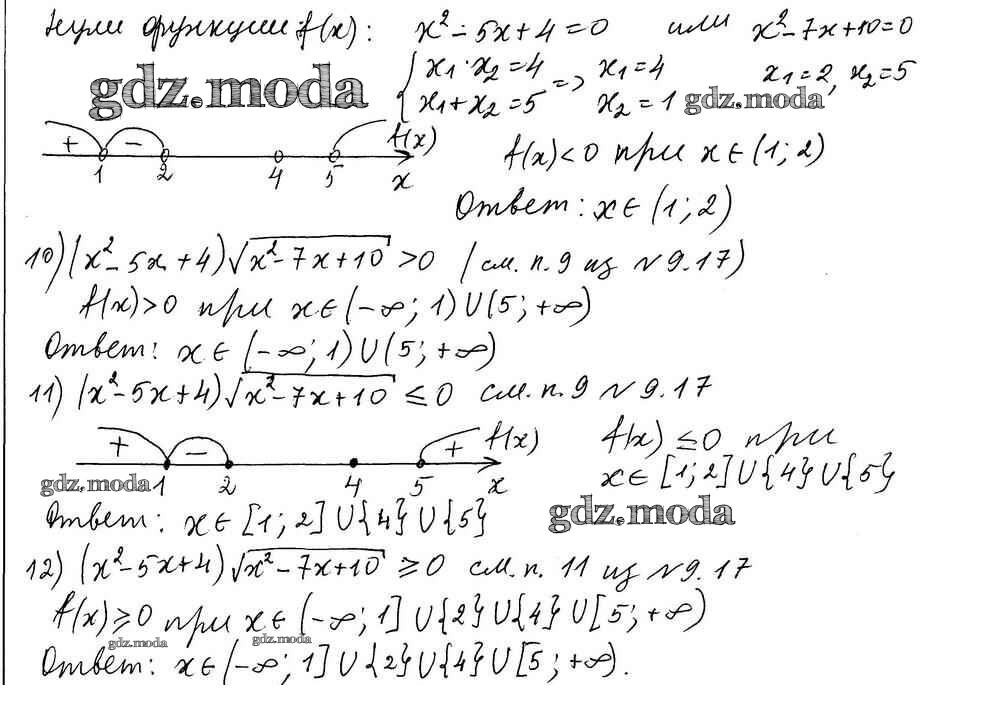 Нули функции f(x): x² - 5x + 4 = 0 или x² - 7x + 10 = 0
{ x₁ · x₂ = 4 => x₁ = 4 x₁ = 2, x₂ = 5
x₁ + x₂ = 5 x₂ = 1
gdz.moda gdz.moda
+ - f(x)
1 2 4 5 x
f(x) < 0 при x ∈ (1; 2)
Ответ: x ∈ (1; 2)
10) (x² - 5x + 4)√(x² - 7x + 10) > 0 (см. п. 9 из №9.17)
f(x) > 0 при x ∈ (-∞; 1) U (5; +∞)
Ответ: x ∈ (-∞; 1) U (5; +∞)
11) (x² - 5x + 4)√(x² - 7x + 10) ≤ 0 см. п. 9 №9.17
+ - + f(x)
1 2 4 5 x
f(x) ≤ 0 при
x ∈ [1; 2] U {4} U {5}
gdz.moda
Ответ: x ∈ [1; 2] U {4} U {5}
gdz.moda
12) (x² - 5x + 4)√(x² - 7x + 10) ≥ 0 см. п. 11 из №9.17
f(x) ≥ 0 при x ∈ (-∞; 1] U {2} U {4} U [5; +∞)
gdz.moda gdz.moda
Ответ: x ∈ (-∞; 1] U {2} U {4} U [5; +∞).